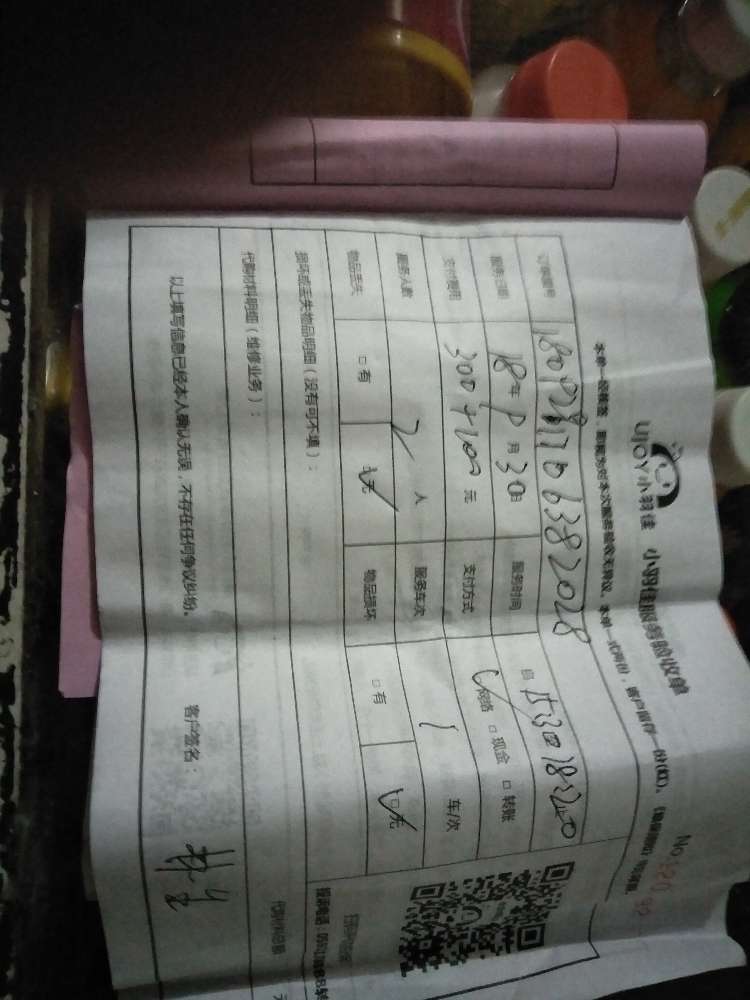 UJOY小羽佳 小羽佳服务验收单
No:
本单一经核签，即视为对本次服务验收无异议，本单一式两份，客户留存一份(红)。
订单编号
服务日期 18年9月30日 服务时间
支付费用 300+100元 支付方式 网络 □现金 □转账
服务人数 2人 服务车次 1 车/次
物品丢失 □有 □无 物品损坏 □有 □无
损坏或丢失物品明细（没有可不填）：
代购材料明细（维修业务）：
代购材料总额 元
以上填写信息已经本人确认无误，不存在任何争议纠纷。 客户签名：